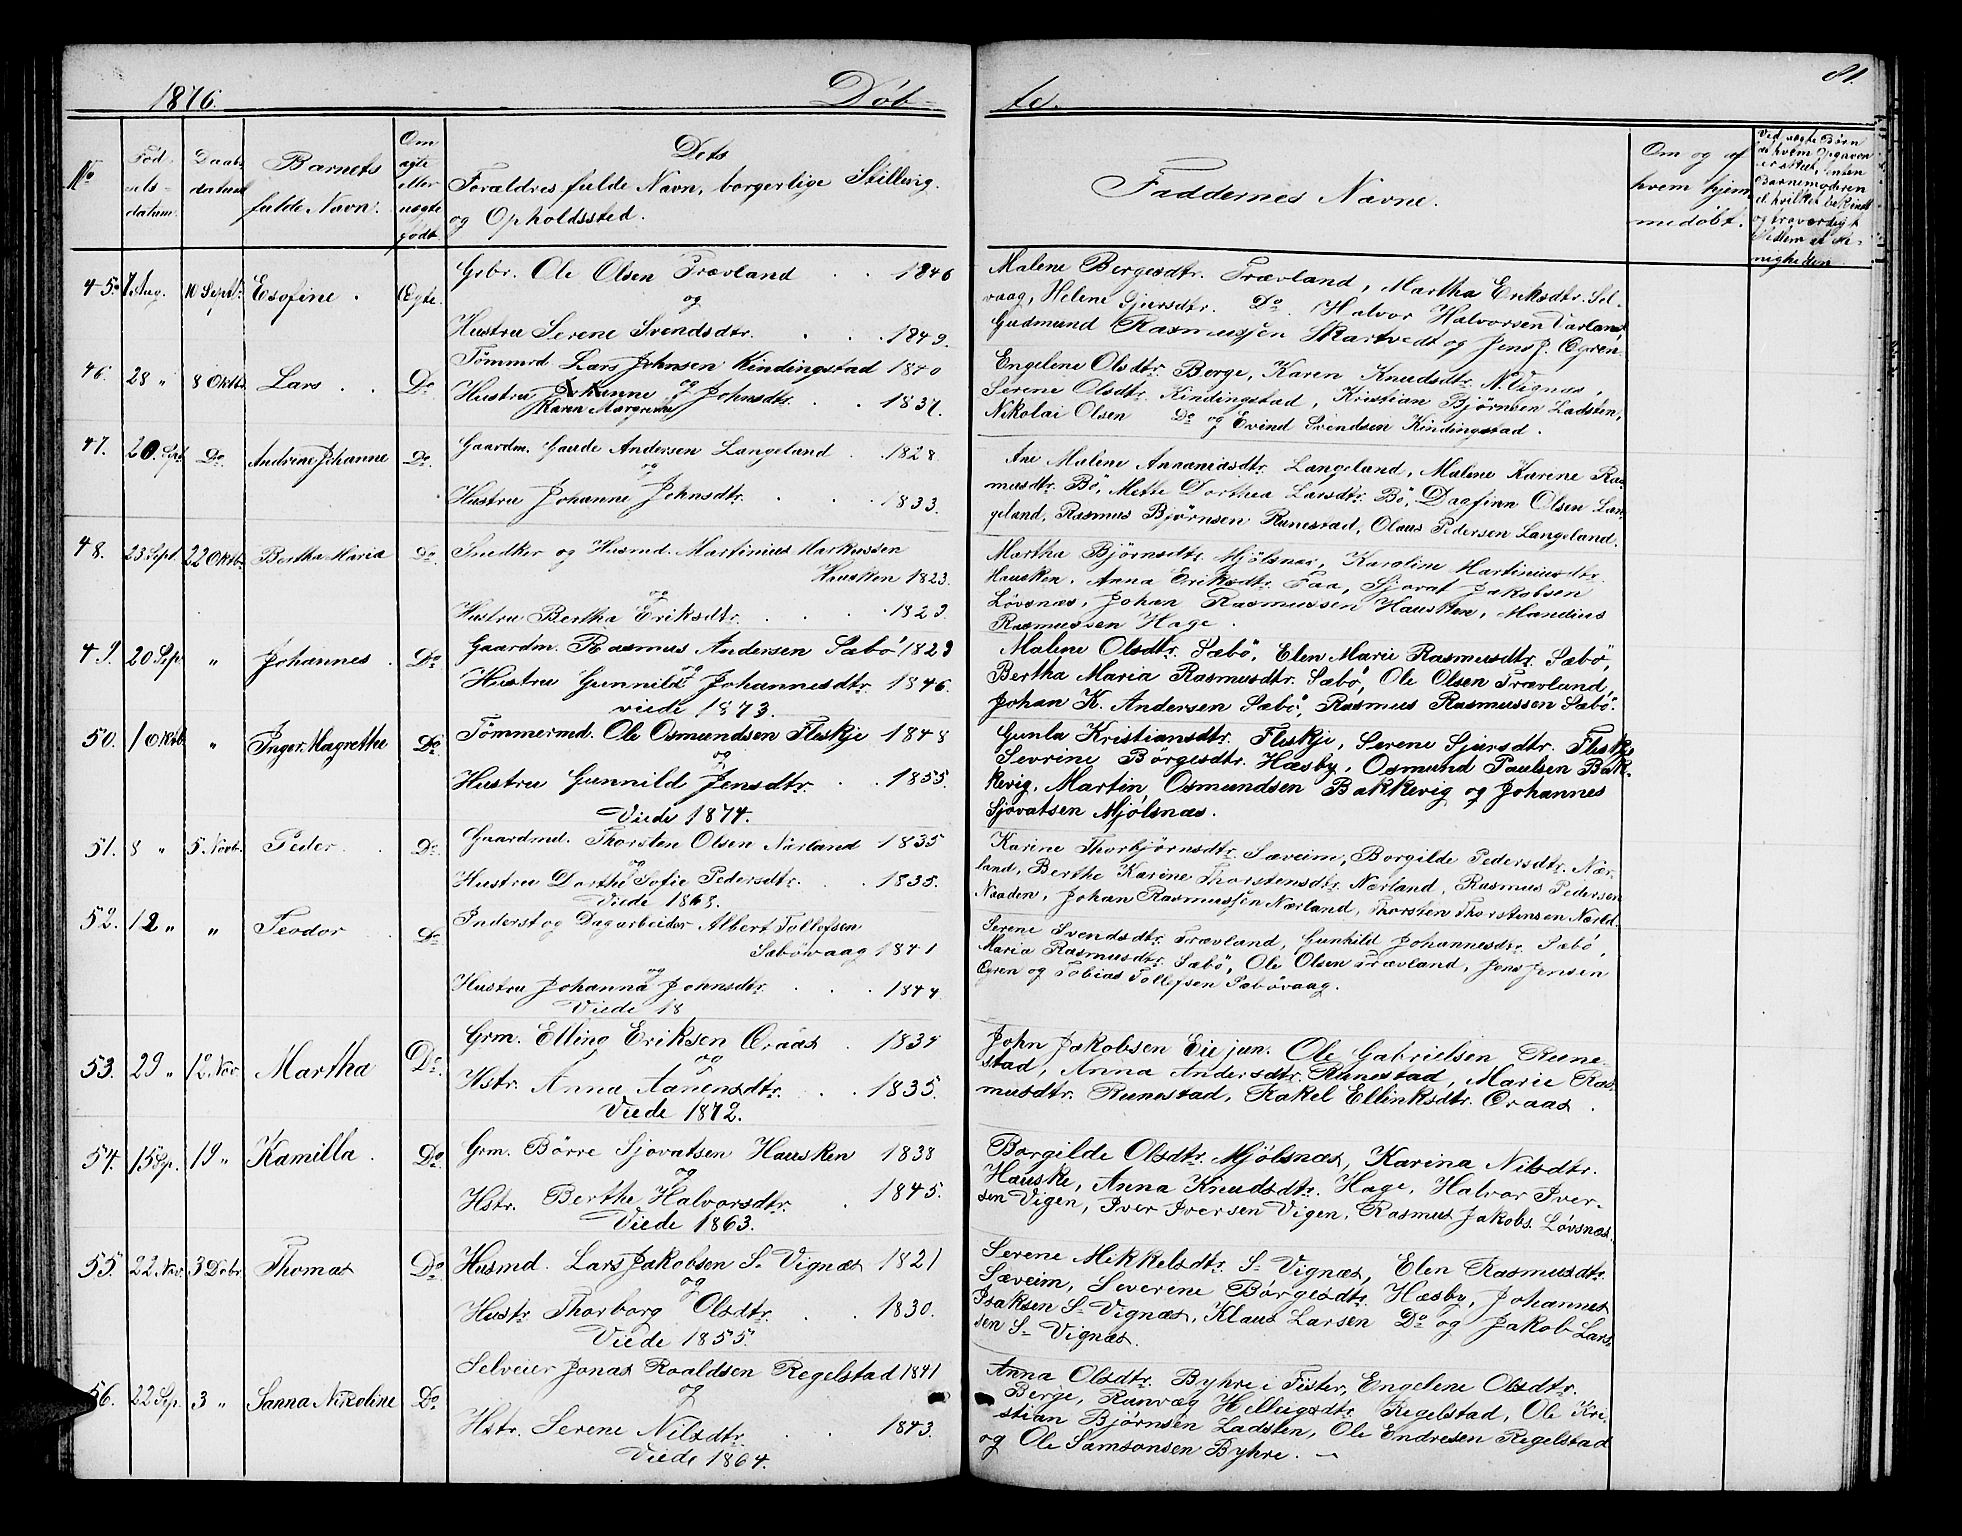 1876. Døb-
te. 81.
No
Fød-
sels-
datum.
Daabs
datum
Barnets
fulde Navn.
Om
ægte
eller
uægte
født
Dets
Forældres fulde Navn, borgerlige Stilling.
og Opholdssted.
Faddernes Navne.
Om og af
hvem hjem
medøbt.
Ved uægte Børn
45. 7 Aug. 10 Septbr. Esofine. Ægte.
Grbr. Ole Olsen Trævland 1846
og
Hustru Serene Svendsdtr. 1849.
Malene Bergesdtr. Trævland, Martha Eriksdtr. Sel-
vaag, Helene Sjursdtr. Do. Halvor Halvorsen Varland
Gudmund Rasmussen Skartvedt og Jens J. Ogren
46. 28 " 8 Oktb. Lars. Do
Tømmrd Lars Johnsen Kindingstad 1840
og
Hustru Johanne Johnsdtr. 1837.
Karen Margrethe
Engelene Olsdtr. Berge, Karen Knudsdtr. N. Vignæs,
Serene Olsdtr. Kindingstad, Kristian Bjørnsen Ladsten,
Nikolai Olsen Do og Evind Svendsen Kindingstad.
47. 20. Sept. Do. Andrine Johanne Do.
Gaardm. Gaude Andersen Langeland 1828.
og
Hustru Johanne Johnsdtr. 1833.
Ane Malene Ananiasdtr. Langeland, Malene Karine Ras-
musdtr. Bö, Mette Dorthea Larsdtr. Bö, Daafinn Olsen Lan-
geland, Rasmus Bjørnsen Runestad, Olaus Pedersen Langeland.
48. 23 Sept. 22 Oktbr. Bertha Maria Do.
Snedker og Husmd. Martinius Markussen
Hausken 1823.
og
Hustru Bertha Eriksdtr. 1829.
Martha Bjørnsdtr. Mjølsnæs, Karoline Martiniusdtr.
Hausken, Anna Eriksdtr. Faa, Sjovat Jakobsen
Løvsnæs, Johan Rasmussen Hausken, Mandius
Rasmussen Hage.
49. 20 Sep. " Johannes. Do
Gaardm. Rasmus Andersen Sæbö 1829
og
Hustru Gunnild Johannesdtr 1846.
viede 1873.
Malene Olsdtr. Sæbö, Elen Marie Rasmusdtr. Sæbö,
Bertha Maria Rasmusdtr. Sæbö, Ole Olsen Trævland,
Johan K. Andersen Sæbö, Rasmus Rasmussen Sæbö.
50. 1 Oktb. " Inger Magrethe Do
Tømmermd. Ole Osmundsen Fleskje 1848
og
Hustru Gunnild Jensdtr. 1855.
Viede 1874.
Gunla Kristiansdtr. Fleskje, Serene Sjursdtr. Flesk-
Sevrine Börgesdtr. Hæsby, Osmund Paulsen Bak-
kevig, Martin Osmundsen Bakkevig og Johannes
Sjovatsen Mjølsnæs.
51. 8 " 5. Novb. Peder. Do
Gaardmd. Thorsten Olsen Nærland 1835
og
Hustru Dorthe Sofie Pedersdtr. 1835.
Viede 1863.
Karine Thorbjørnsdtr. Sæveim, Borgilde Pedersdtr. Nær-
land, Berthe Karine Thorstensdtr. Nærland, Rasmus Pedersen
Naaden, Johan Rasmussen Nærland, Thorsten Thorstensen Nærld.
52. 12 " " Teodor Do
Inderst og Dagarbeider Albert Tollefsen
Sæbövaag 1841
og
Hustru Johanna Johnsdtr. 1844.
Viede 18
Serene Svendsdtr. Trævland, Gunhild Johannesdtr. Sæbö,
Maria Rasmusdtr. Sæbö, Ole Olsen Trævland, Jens Jensen
Ogren og Tobias Tollefsen Sæbövaag.
53. 29 " 12. Nov. Martha Do.
Grm. Elling Eriksen Øraas 1834
og
Hstr. Anna Aanensdtr. 1835.
Viede 1872.
John Jakobsen Eie jun. Ole Gabrielsen Rune-
stad, Anna Andersdtr. Runestad, Marie Ras-
musdtr. Runestad, Rakel Ellinksdtr. Øraas.
54. 15 Sp. 19 " Kamilla. Do
Grm. Börre Sjovatsen Hausken 1838
og
Hstr. Berthe Halvorsdtr. 1845.
Viede 1863.
Borgilde Olsdtr. Mjölsnæs, Karina Nilsdtr.
Hauske, Anna Knudsdtr. Hage, Halvor Iver-
sen Vigen, Iver Iversen Vigen, Rasmus Jakobs. Løvsnæs.
55. 22. Nov. 3 Debr. Thomas Do
Husmd. Lars Jakobsen S. Vignæs 1821
og
Hustr. Thorborg Olsdtr. 1830.
Viede 1855.
Serene Mikkelsdtr. S. Vignæs, Elen Rasmusdtr.
Sæveim, Severine Börgesdtr. Hæsby, Johannes
Isaksen S. Vignæs, Klaus Larsen Do og Jakob Lars-
sen S. Vignæs.
56. 22 Sep. 3 " Sanna Nikoline Do
Selveier Jonas Roaldsen Regelstad 1841
og
Hstr. Serene Nilsdtr. 1843.
Viede 1864.
Anna Olsdtr. Byhre i Fister, Engelene Olsdtr.
Berge, Runvæg Helliesdtr. Regelstad, Ole Kri-
stian Bjørnsen Ladsten, Ole Endresen Regelstad
og Ole Samsonsen Byhre.